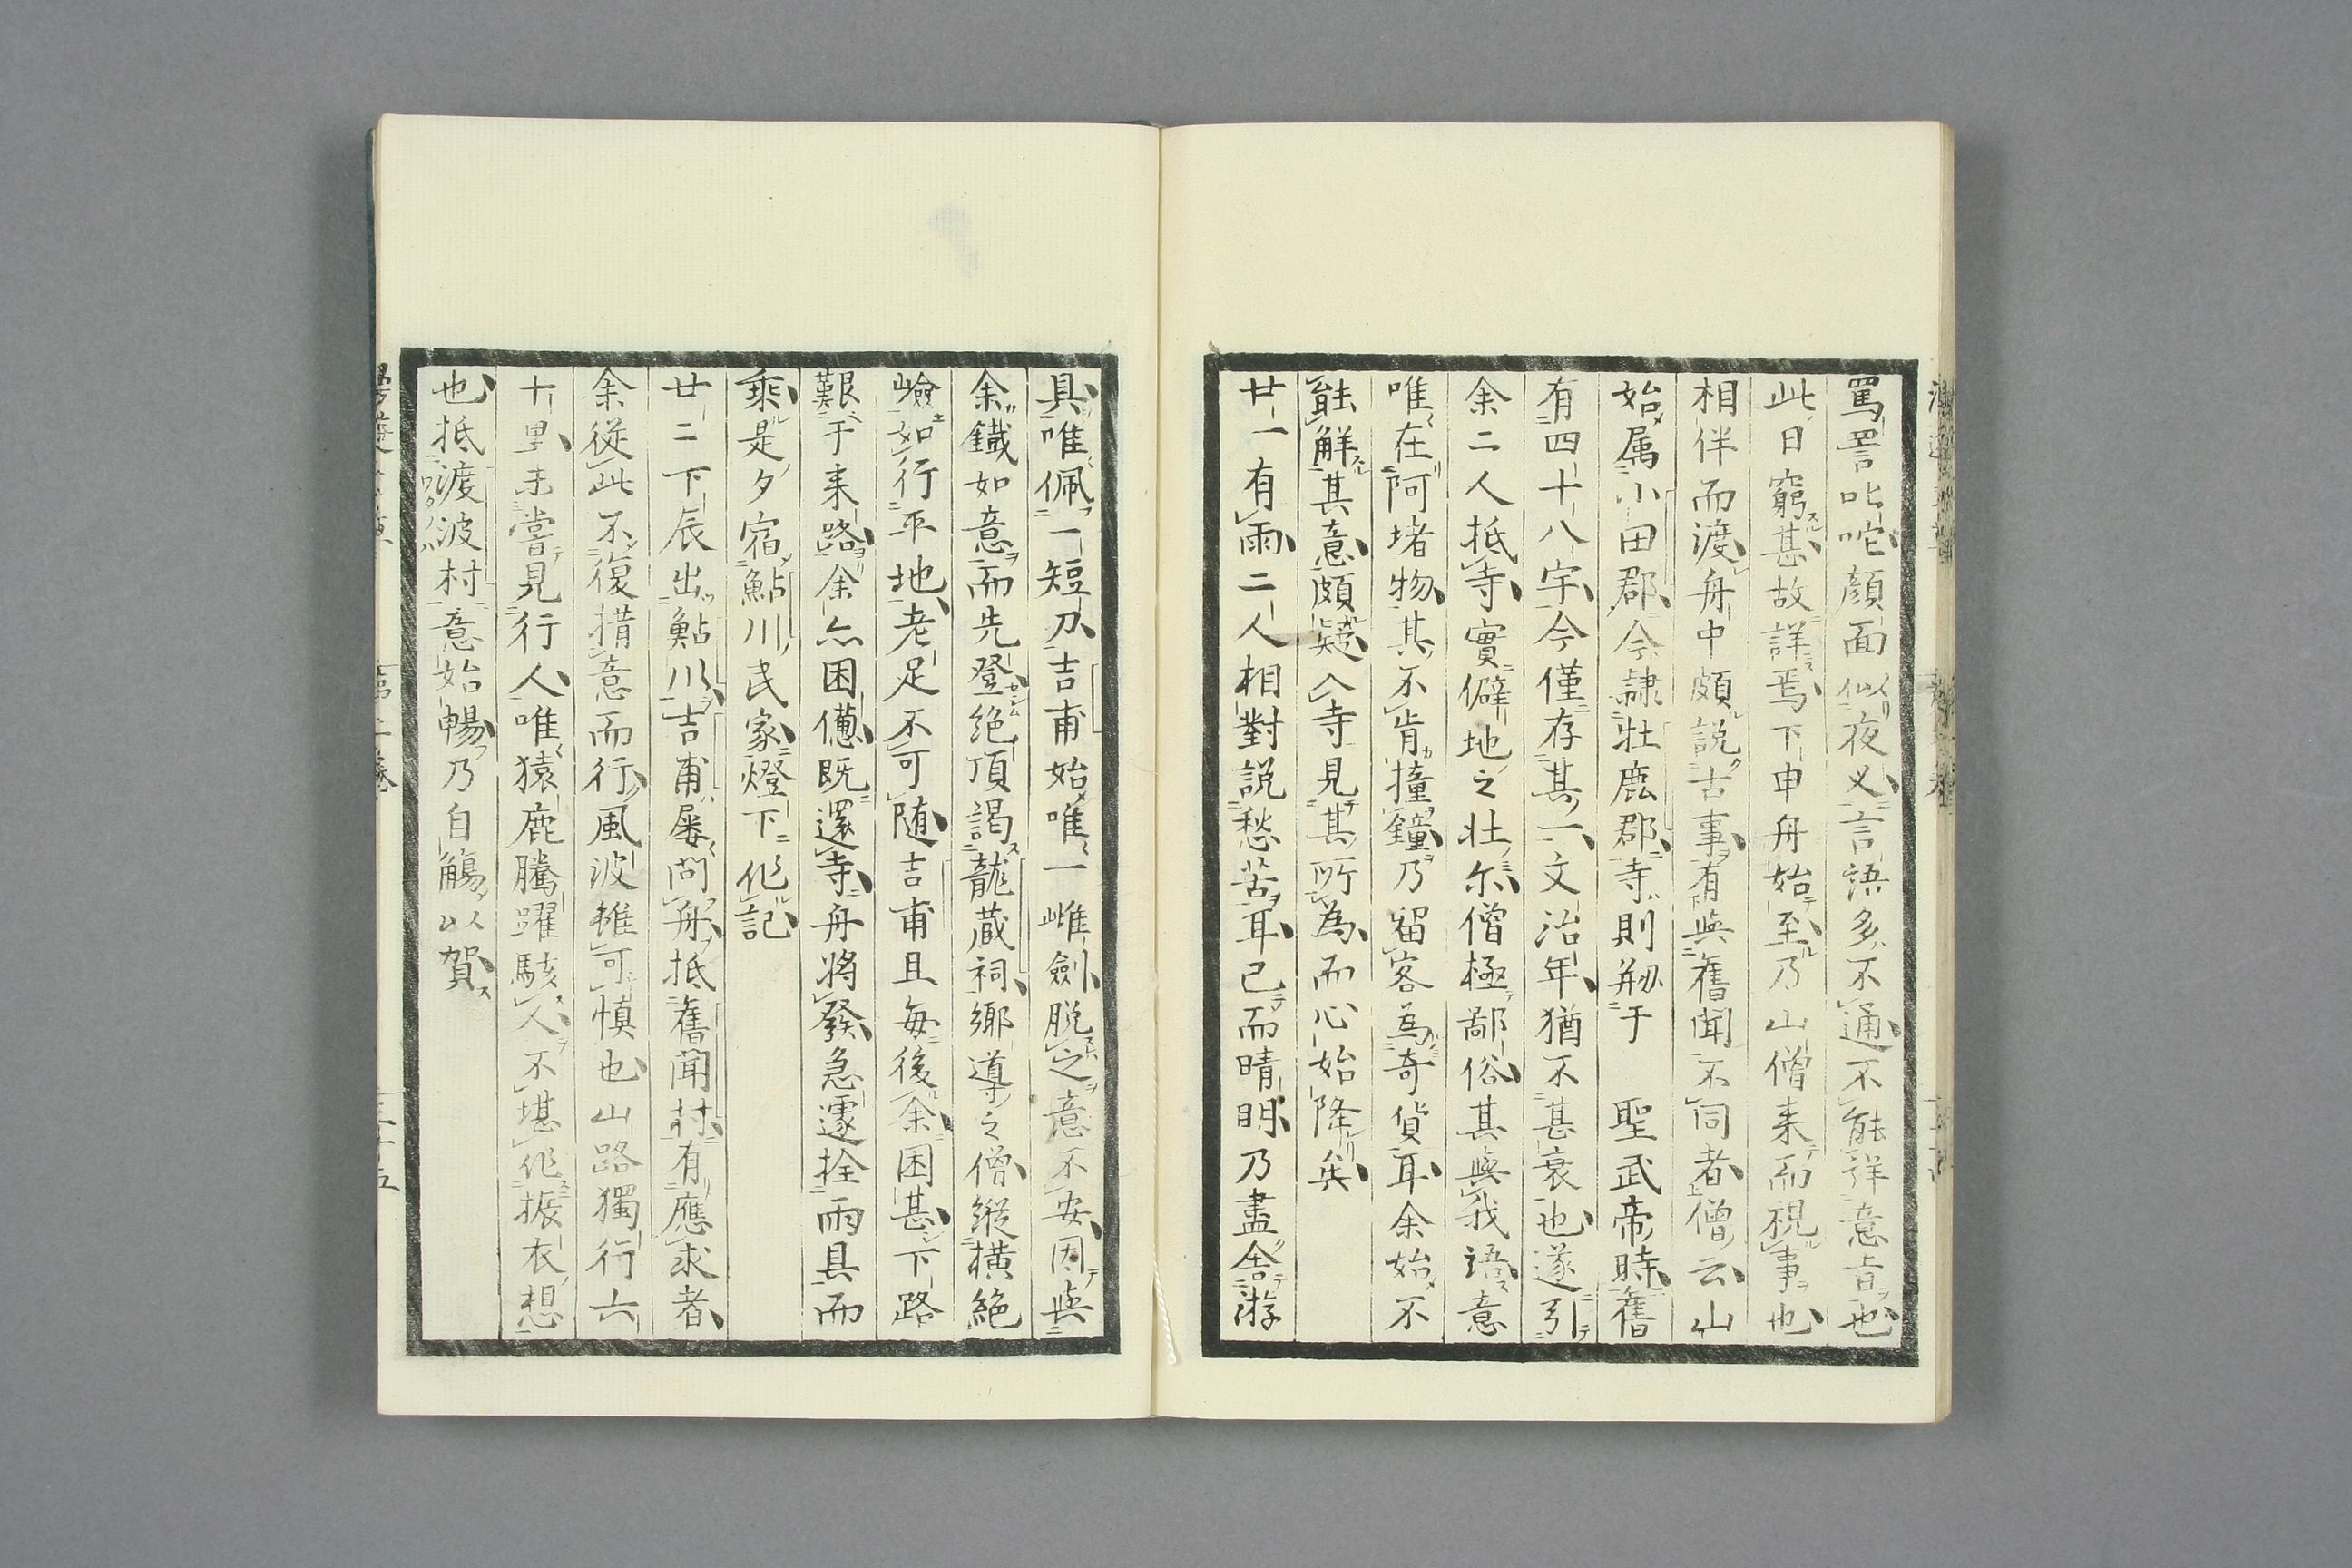 罵詈叱咜顔面似夜叉言語多不通不能詳意旨也
此日窮甚故詳焉下申舟始至乃山僧来而視事也
相伴而渡舟中頗説古事有與舊聞不同者僧云山
始属小田郡今隷牡鹿郡寺則剏于　聖武帝時舊
有四十八宇今僅存其一文治年猶不甚衰也遂引
余二人抵寺實僻地之壮尓僧極鄙俗其與我語意
唯在阿堵物其不肯撞鐘乃留客為奇貨耳余始不
能解其意頗疑入寺見其所為而心始降矣
廿一有雨二人相對説愁苦耳已而晴明乃盡舍游
具唯佩一短刀吉甫始唯一雌劍脱之意不安因與
余鐵如意而先登絶頂謁龍蔵祠郷導之僧縦横絶
嶮如行平地老足不可随吉甫且毎後余困甚下路
艱于来路余亦困憊既還寺舟将發急遽拴雨具而
乘是夕宿鮎川民家燈下作記
廿二下辰出鮎川吉甫屡問舟抵舊聞村有應求者
余従此不復措意而行風波雖可慎也山路獨行六
十里未嘗見行人唯猿鹿騰躍駭人不堪作振衣想
也抵渡波村意始暢乃自觴以賀